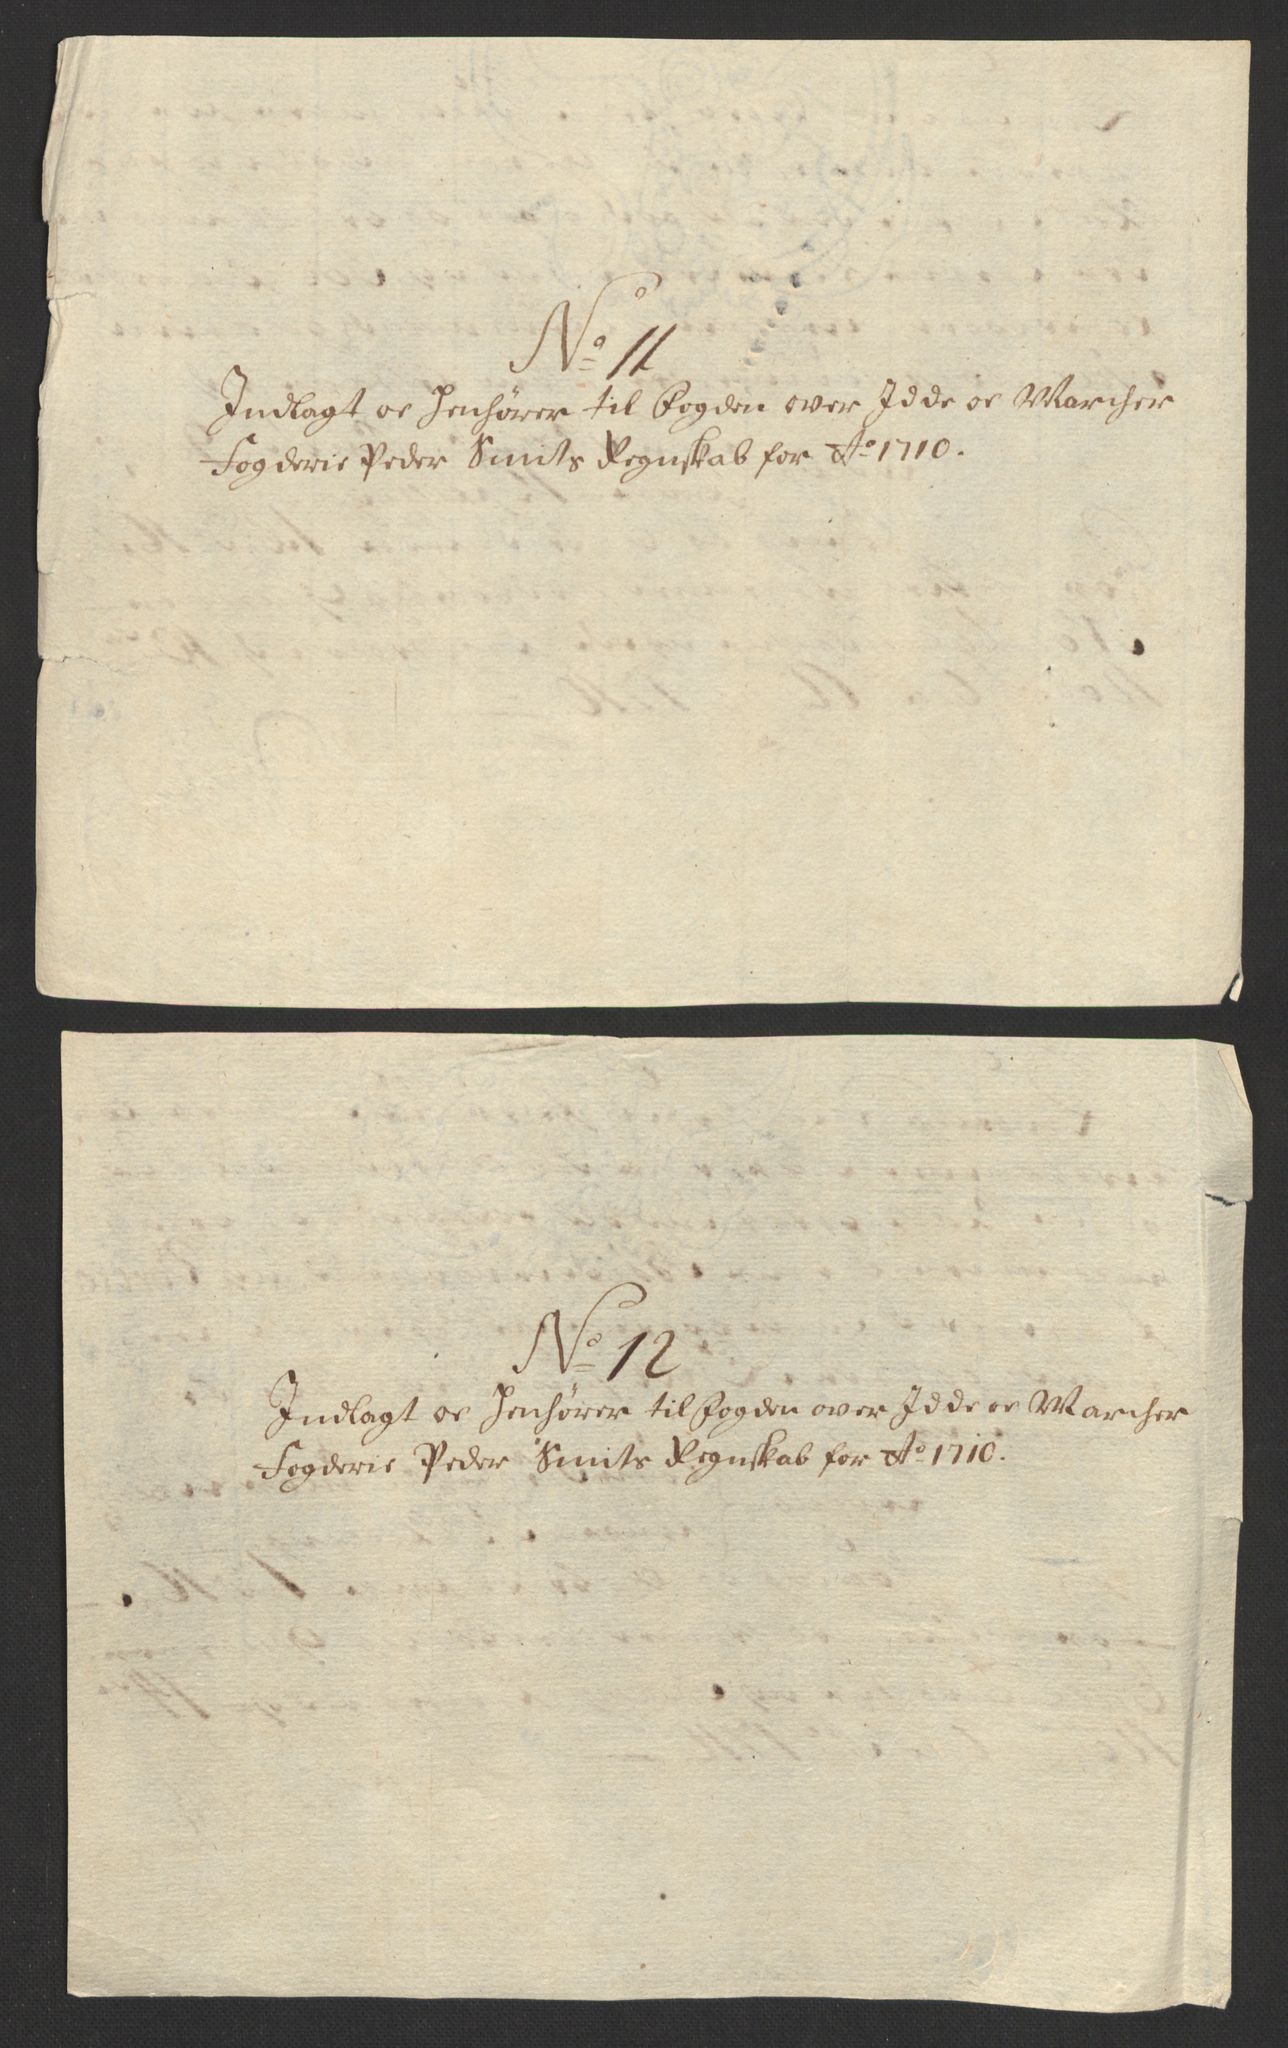 No 11
Indlagt oc Henhörer til Fogden over Idde oc Marcher
Fogderie Peder Smits Regnskab for Ao 1710.
No 12
Indlagt oc Henhörer til Fogden over Idde oc Marcher
Fogderie Peder Smits Regnskab for Ao 1710.